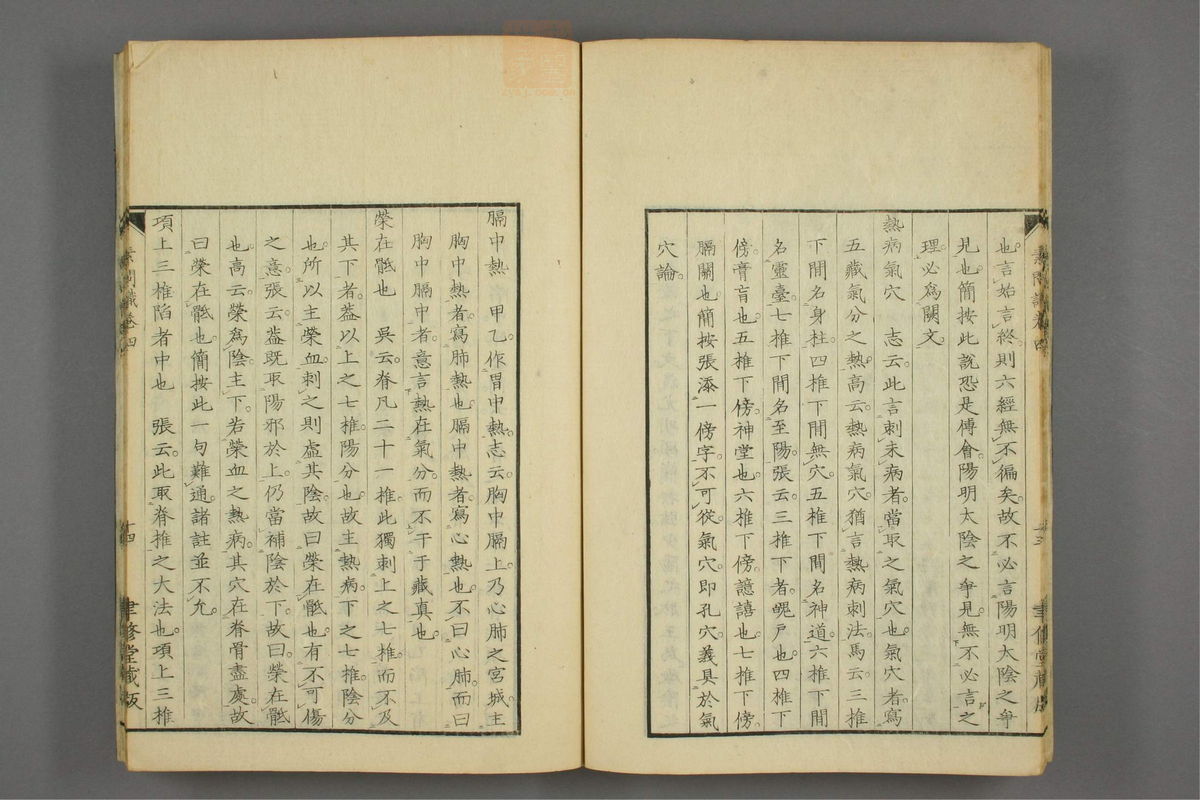 也言始言終則六經無不徧矣故不必言陽明太陰之爭
見也簡按此說恐是傅會陽明太陰之爭見無不必言之
理必爲闕文
熱病氣穴　志云此言刺未病者當取之氣穴也氣穴者寫
五藏氣分之熱高云熱病氣穴猶言熱病刺法馬云三椎
下間名身柱四椎下間無穴五椎下間名神道六椎下間
名靈臺七椎下間名至陽張云三椎下者魄戶也四椎下
傍膏肓也五椎下傍神堂也六椎下傍譩譆也七椎下傍
膈關也簡按張添一傍字不可從氣穴即孔穴義具於氣
穴論
素問識卷四
十三
聿修堂藏版
膈中熱　甲乙作胃中熱志云胸中膈上乃心肺之宮城主
胸中熱者寫肺熱也膈中熱者寫心熱也不曰心肺而曰
胸中膈中者意言熱在氣分而不干于藏真也
榮在骶也　吳云脊凡二十一椎此獨刺上之七椎而不及
其下者葢以上之七椎陽分也故主熱病下之七椎陰分
也所以主榮血刺之則虛其陰故曰榮在骶也有不可傷
之意張云葢既取陽邪於上仍當補陰於下故曰榮在骶
也高云榮爲陰主下若榮血之熱病其穴在脊骨盡處故
曰榮在骶也簡按此一句難通諸註並不允
項上三椎陷者中也　張云此取脊椎之大法也項上三椎
素問識卷四
十四
聿修堂藏版